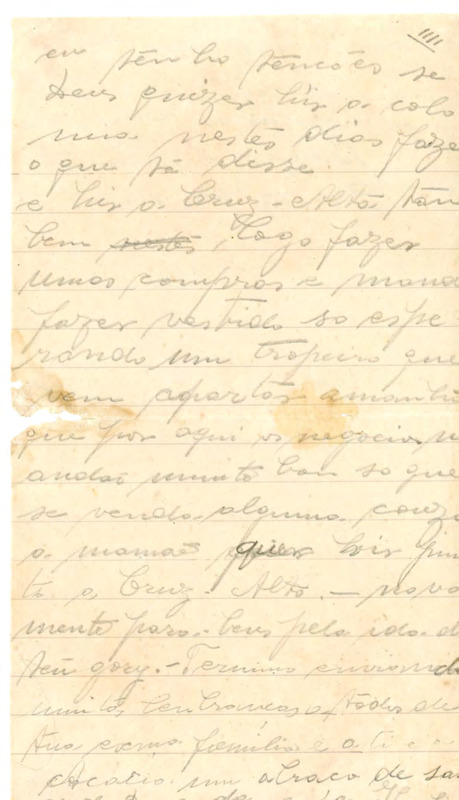 IIII
eu tenho tencões se
Deus quizer hir a colo
nia nestes dias faze
o que ja disse
e hir a Cruz-Alta tan
bem nestes logo fazer
umas compras e manda
fazer vestido so espe
rando um tropeiro que
vem apartar amanhã
que por aqui os negocios n
andão muito bom so que
se vende alguma couza
a mamãe quer hir jun
to a Cruz-Alta. — nova
mente para-bens pela ida d
teu gory.- Termino enviando
muitas lembrancas a todos de
tua exma familia e a ti
um abraco de sau